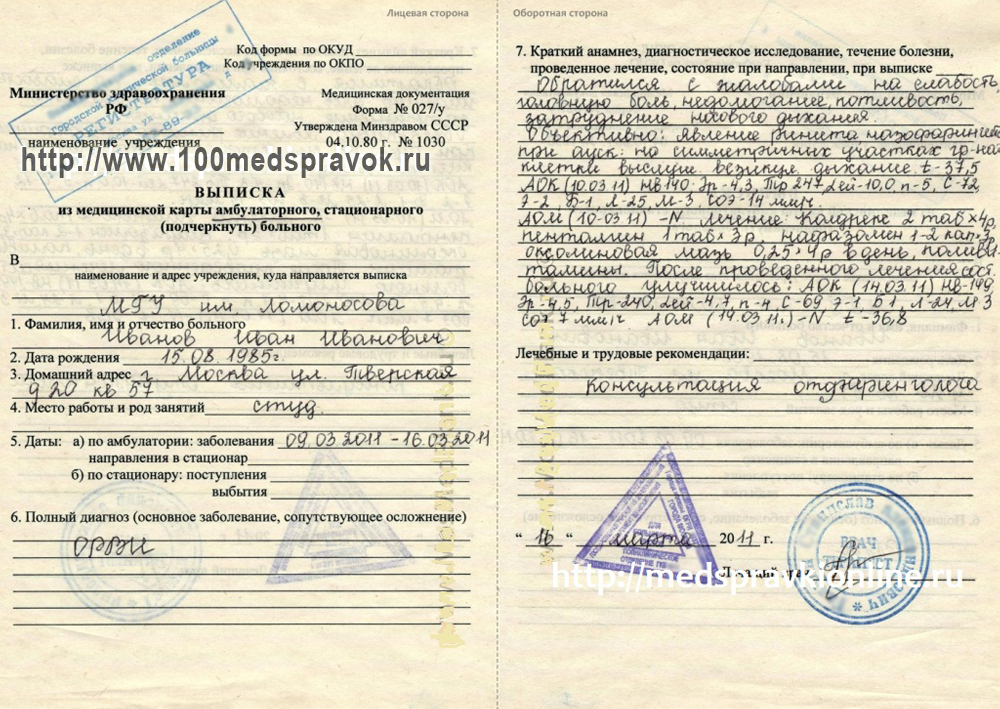 Лицевая сторона
Оборотная сторона
отделение
Городской клинической больницы
РЕГИСТРАТУРА
Код формы по ОКУД
Код учреждения по ОКПО
Министерство здравоохранения
РФ
наименование учреждения
Медицинская документация
Форма № 027/у
Утверждена Минздравом СССР
04.10.80 г. № 1030
http://www.100medspravok.ru
ВЫПИСКА
из медицинской карты амбулаторного, стационарного
(подчеркнуть) больного
В
наименование и адрес учреждения, куда направляется выписка
МГУ им. Ломоносова
1. Фамилия, имя и отчество больного
Иванов Иван Иванович
2. Дата рождения 15.08.1985г.
3. Домашний адрес г. Москва ул. Тверская
д 20 кв 57
4. Место работы и род занятий студ.
5. Даты: а) по амбулатории: заболевания 09.03 2011 - 16.03 2011
направления в стационар
б) по стационару: поступления
выбытия
6. Полный диагноз (основное заболевание, сопутствующее осложнение)
ОРВИ
7. Краткий анамнез, диагностическое исследование, течение болезни,
проведенное лечение, состояние при направлении, при выписке
Обратился с жалобами на слабость,
головную боль, недомогание, потливость,
затруднение носового дыхания.
Объективно: явление ринита назофарингит
при ауск: на симметричных участках гр-най
клетки выслуш везикул дыхание t-37,5
АОК (10.03 11) Нв 140 Эр-4,3, Тр 247, лей-10,0 п-5, С-72,
Э-2, Б-1, Л-25, М-3, СОЭ-14 мм/ч.
АОМ (10-03 11) -N. Лечение: Колдрекс 2 таб×4р,
1 таб×3р, 1-2 кап×3,
оксолиновая мазь 0,25×4р в день, поливи-
тамины. После проведенного лечения сост.
больного улучшилось: АОК (14.03 11) Нв-149,
Эр-4,5, Тр-240, лей-4,7, п-4, С-69 Э-1, Б1, Л-24 М3
СОЭ 7 мм/ч АОМ (14.03 11.)-N t-36,8
Лечебные и трудовые рекомендации:
консультация
" 16 " марта 2011 г.
ВРАЧ
http://medspravkionline.ru